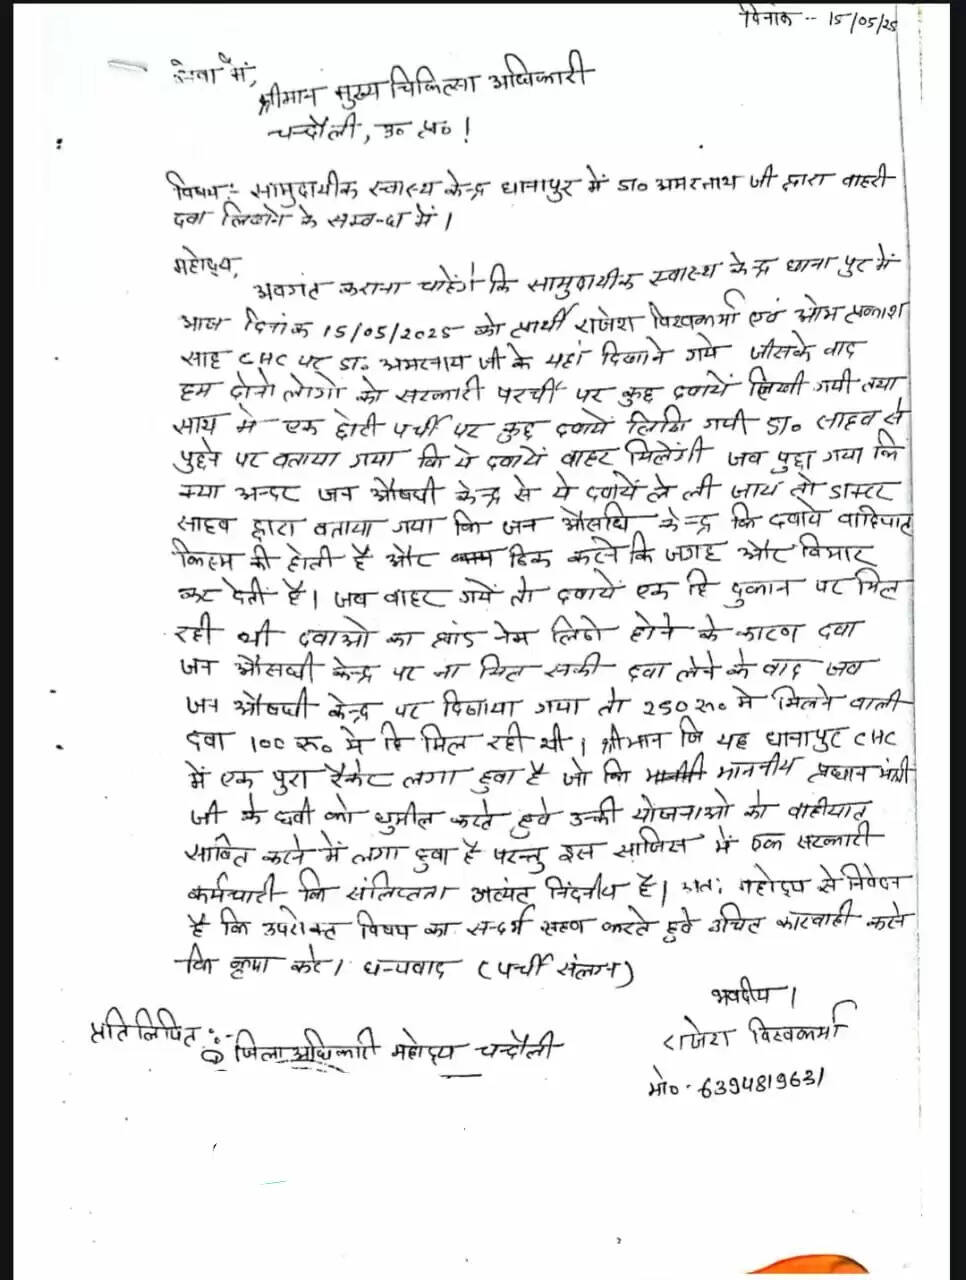 दिनांक -- 15/05/25
सेवा में,
श्रीमान मुख्य चिकित्सा अधिकारी
चन्दौली, उ० प्र० !
विषय:- सामुदायीक स्वास्थ्य केन्द्र धानापुर में डा० अमरनाथ जी द्वारा बाहरी
दवा लिखने के सम्बन्ध में ।
महोदय,
अवगत कराना चाहेंगे कि सामुदायीक स्वास्थ केन्द्र धानापुर में
आज दिनांक 15/05/2025 को प्रार्थी राजेश विश्वकर्मा एवं ओम प्रकाश
साह CHC पर डा० अमरनाथ जी के यहां दिखाने गये जीसके बाद
हम दोनो लोगो को सरकारी परची पर कुछ दवायें लिखी गयी तथा
साथ मे एक छोटी पर्ची पर कुछ दवायें लिखि गयी डा० साहब से
पुछने पर बताया गया कि ये दवायें बाहर मिलेंगी जब पुछा गया कि
क्या अन्दर जन औषधी केन्द्र से ये दवायें ले ली जाय तो डाक्टर
साहब द्वारा बताया गया कि जन औसधि केन्द्र कि दवाये वाहियात
किस्म की होती है और ठिक करने कि जगह और बिमार
कर देती है । जब बाहर गयें तो दवायें एक हि दुकान पर मिल
रही थी दवाओ का ब्रांड नेम लिखे होने के कारण दवा
जन औसधी केन्द्र पर ना मिल सकी दवा लेने के बाद जब
जन औषधी केन्द्र पर दिखाया गया तो 250 रू० मे मिलने वाली
दवा 100 रू० मे हि मिल रही थी । श्रीमान जि यह धानापुर CHC
में एक पुरा रैकेट लगा हुवा है जो कि माननीय प्रधान मंत्री
जी के छवी को धुमील करते हुवे उन्की योजनाओ को वाहीयात
साबित करने में लगा हुवा है परन्तु इस साजिस में एक सरकारी
कर्मचारी कि संलिप्तता अत्यंत निंदनीय है । अतः महोदय से निवेदन
है कि उपरोक्त विषय का सन्दर्भ ग्रहण करते हुवे उचित कारवाही करने
कि कृपा करे । धन्यवाद (पर्ची संलग्न)
भवदीय ।
प्रतिलिपित :-
राजेश विश्वकर्मा
① जिला अधिकारी महोदय चन्दौली
मो० - 6394819631